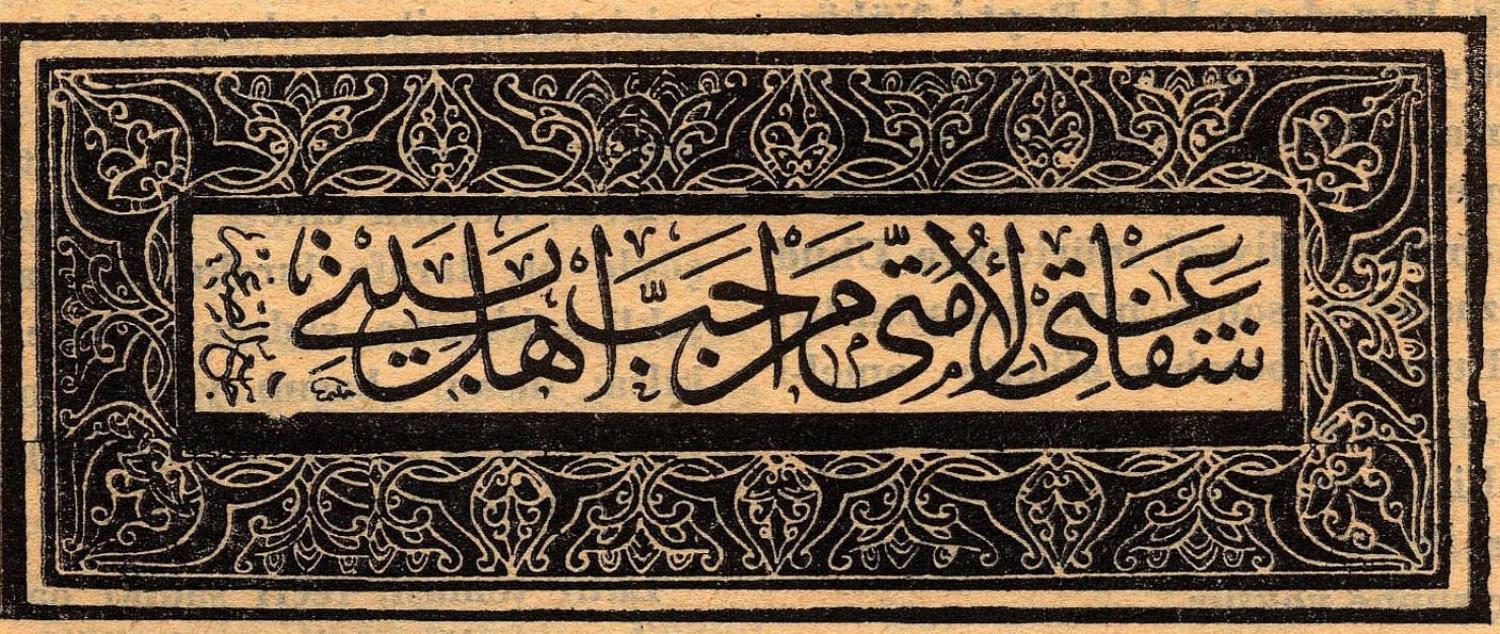 شَفَاعَتِي لِأُمَّتِي مَنْ أَحَبَّ أَهْلَ بَيْتِي